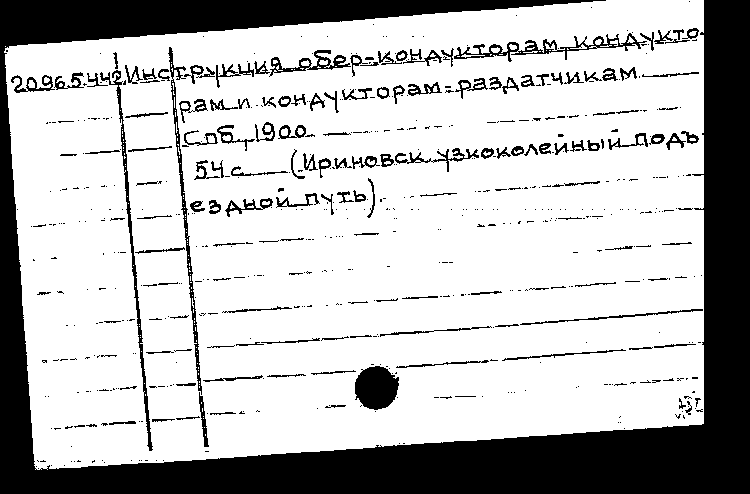 20.96.5.442 Инструкция обер-кондукторам, кондукто-
рам и кондукторам-раздатчикам
Спб., 1900
54 с (Ириновск. узкоколейный подъ-
ездной путь).